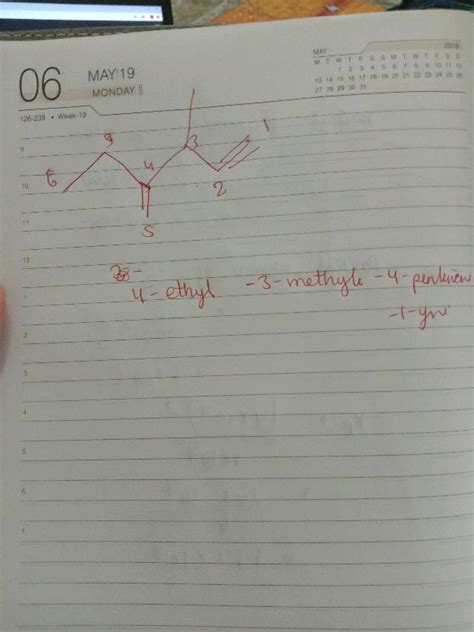 06
MAY'19
MONDAY
126-239 • Week-19
MAY 2019
M T W T F S S M T W T F S S
1 2 3 4 5 6 7 8 9 10 11 12
13 14 15 16 17 18 19 20 21 22 23 24 25 26
27 28 29 30 31
9
10
11
12
1
2
3
4
5
6
7
8
1
3
4
2
5
6
4-ethyl -3-methyl -4-
-1-yne